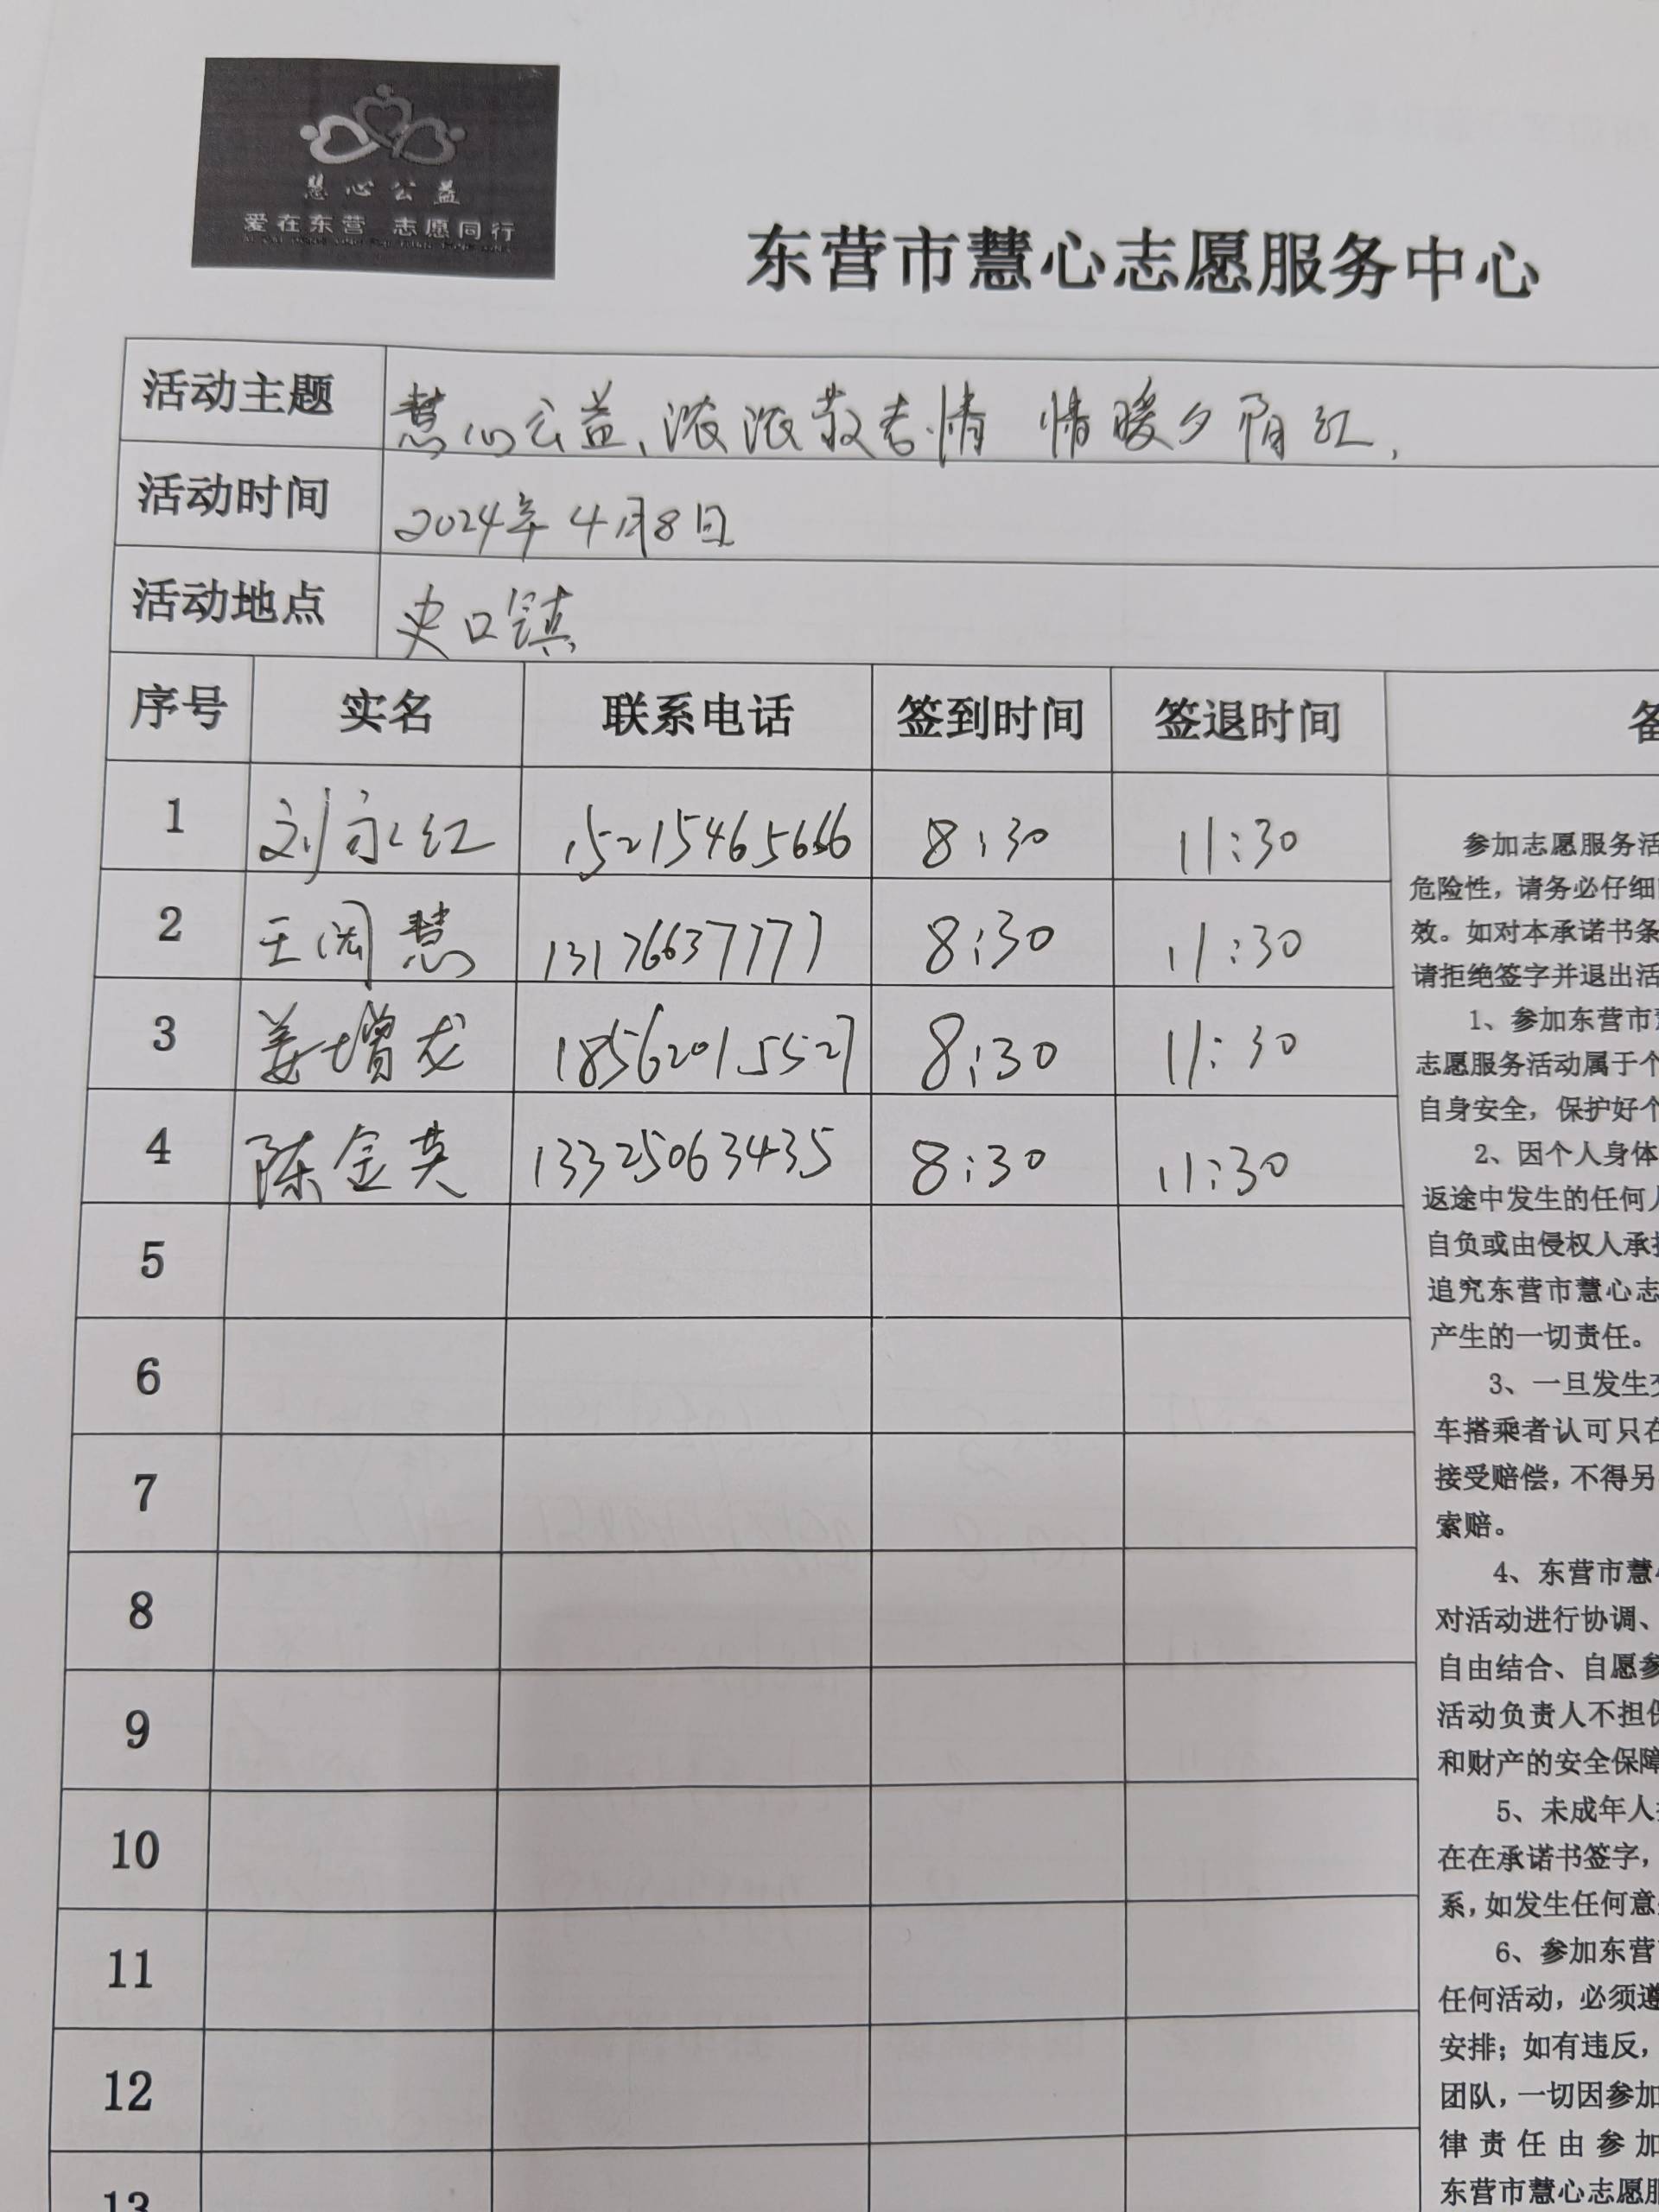 慧心公益
爱在东营 志愿同行
东营市慧心志愿服务中心
活动主题 慧心公益、浓浓敬老情 情暖夕阳红,
活动时间 2024年4月8日
活动地点 史口镇
序号 实名 联系电话 签到时间 签退时间 备
1 刘永红 15215465666 8:30 11:30
2 王闰慧 13176637777 8:30 11:30
3 姜增龙 18562015527 8:30 11:30
4 陈金英 13325063435 8:30 11:30
5
6
7
8
9
10
11
12
13
参加志愿服务活
危险性，请务必仔细
效。如对本承诺书条
请拒绝签字并退出活
1、参加东营市
志愿服务活动属于个
自身安全，保护好个
2、因个人身体
返途中发生的任何人
自负或由侵权人承担
追究东营市慧心志
产生的一切责任。
3、一旦发生交
车搭乘者认可只在
接受赔偿，不得另
索赔。
4、东营市慧心
对活动进行协调、
自由结合、自愿参
活动负责人不担保
和财产的安全保障
5、未成年人
在在承诺书签字，
系，如发生任何意
6、参加东营
任何活动，必须遵
安排；如有违反，
团队，一切因参加
律责任由参加
东营市慧心志愿服